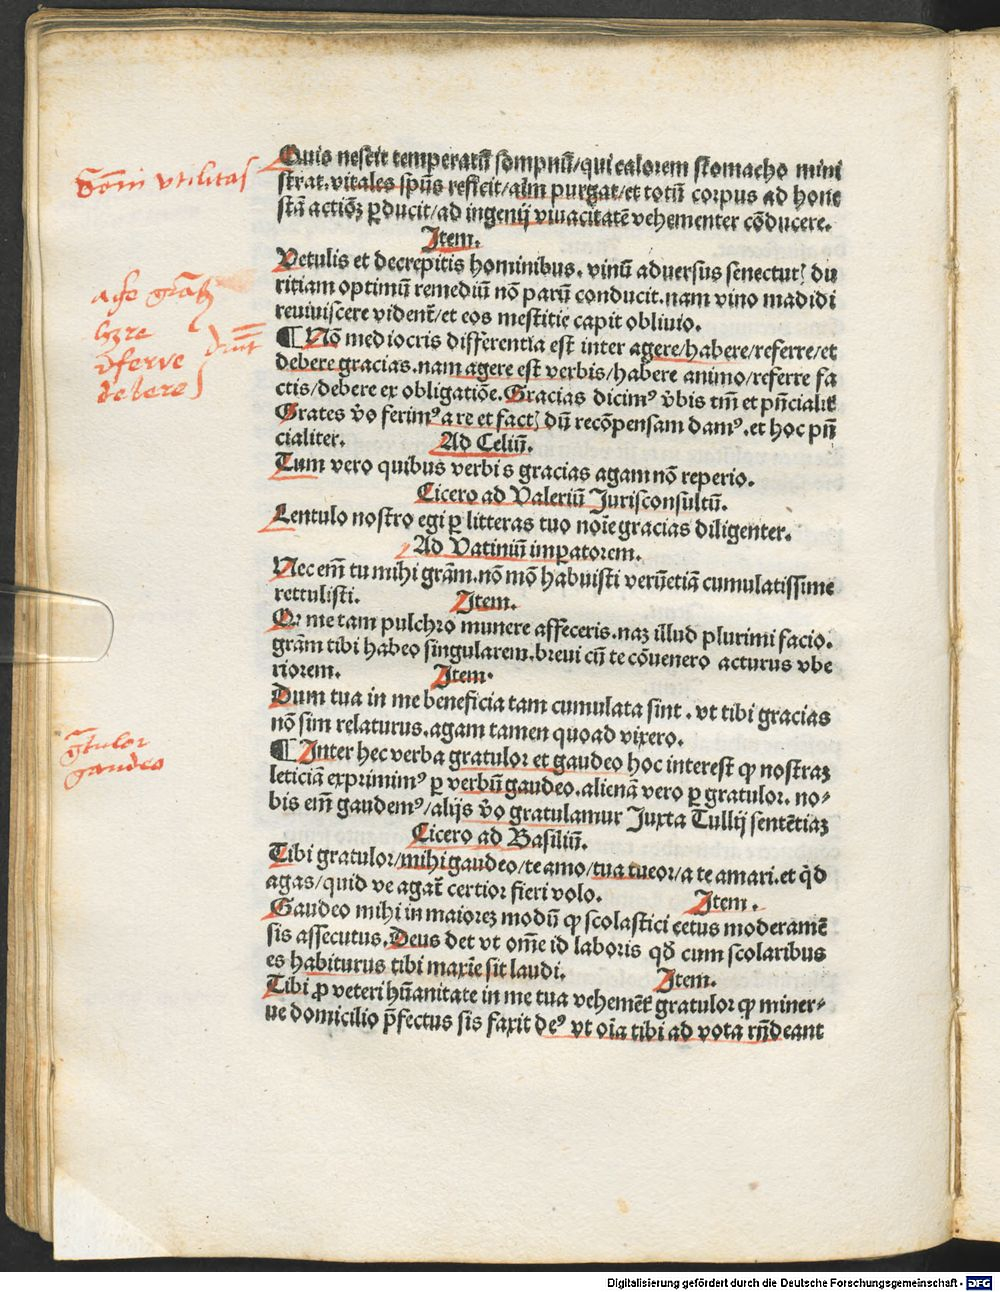 Somni vtilitas
Quis nescit temperatū sompnū/qui calorem stomacho mini
strat.vitales spūs reficit/aīm purgat/et totū corpus ad hone
stā actiōꝫ ꝑducit/ad ingenij viuacitatē vehementer cōducere.
Item.
Vetulis et decrepitis hominibus.vinū aduersus senectutꝭ du
ritiam optimū remediū nō parū conducit.nam vino madidi
reuiuiscere vident᷑/et eos mestitie capit obliuio.
¶ Nō mediocris differentia est inter agere/habere/referre/et
debere gracias.nam agere est verbis/habere animo/referre fa
ctis/debere ex obligatiōe.Gracias dicimꝰ v̄bis tm̄ et pn̄cialit᷑
Grates v̄o ferimꝰ a re et factꝭ dū recōpensam damꝰ.et hoc pn̄
cialiter. Ad Celiū.
Tum vero quibus verbis gracias agam nō reperio.
Cicero ad Valeriū Jurisconsultū.
Lentulo nostro egi ꝑ litteras tuo noīe gracias diligenter.
Ad Vatiniū imꝑatorem.
Nec em̄ tu mihi grām.nō mō habuisti verūetiā cumulatissime
rettulisti. Item.
Qꝛ me tam pulchro munere affeceris.naꝫ illud plurimi facio.
grām tibi habeo singularem.breui cū te cōuenero acturus vbe
riorem. Item.
Dum tua in me beneficia tam cumulata sint.vt tibi gracias
nō sim relaturus.agam tamen quoad vixero.
gͣtulor
gaudeo
¶ Inter hec verba gratulor et gaudeo hoc interest ꝙ nostraꝫ
leticiā exprimimꝰ ꝑ verbū gaudeo.alienā vero ꝑ gratulor.no-
bis em̄ gaudemꝰ/alijs v̄o gratulamur Juxta Tullij sentētiaꝫ
Cicero ad Basiliū.
Tibi gratulor/mihi gaudeo/te amo/tua tueor/a te amari.et qͥd
agas/quid ve agat᷑ certior fieri volo. Item.
Gaudeo mihi in maioreꝫ modū ꝙ scolastici cetus moderamē
sis assecutus.Deus det vt om̄e id laboris qd̄ cum scolaribus
es habiturus tibi maxīe sit laudi. Item.
Tibi ꝓ veteri hūanitate in me tua vehemēt᷑ gratulor ꝙ miner-
ue domicilio p̄fectus sis faxit deꝰ vt oīa tibi ad vota rn̄deant
Digitalisierung gefördert durch die Deutsche Forschungsgemeinschaft - DFG